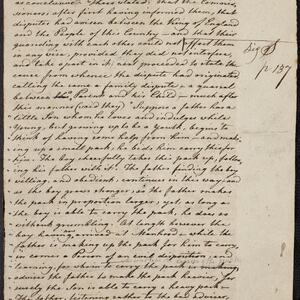 as conclusive. These stated that the Commis-
sioners after first having informed them that
disputes had arisen between the King of England
and the People of this Country — and that their
quarreling with each other would not affect them
in any wise, provided they did not intermeddle,
and take a part in it; next proceeded to state the
cause from whence the dispute had originated
calling the same a family dispute, a quarrel
between a Parent and his Child — much after
this manner (said they) "Suppose a father has a
little Son whom he loves and indulges while
Young, but growing up to be a Youth, begins to
think of having some help from him; and mak-
ing up a small pack, he bids him carry this for
him. The boy cheerfully takes this pack up, follow-
ing his father with it. The father finding the boy
willing and obedient continues in this way and
as the boy grows stronger, so the father makes
the pack in proportion larger; yet, as long as
the boy is able to carry the pack, he does so
without grumbling. At length however the
boy having arrived at Manhood, while the
father is making up the pack for him to carry,
in comes a Person of an evil disposition, and
learning, for whom to carry the pack is making,
advises the father to make the pack heavier, for
surely the Son is able to carry a heavy pack —
The father, listening rather to the bad adviser,
p 137